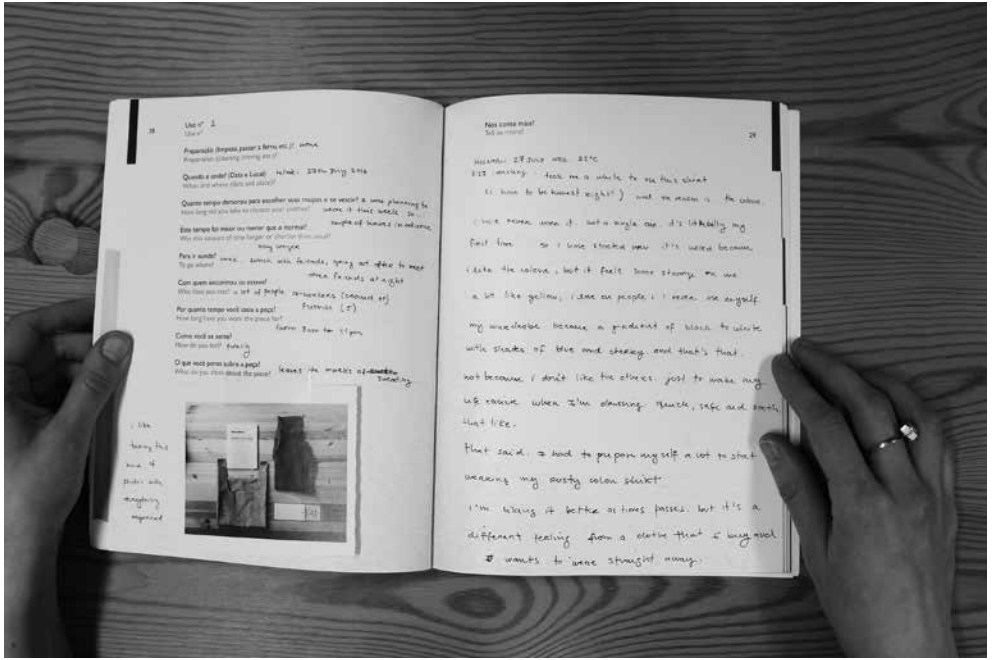 28
Uso nº 1
Use nº
Preparação (limpeza, passar a ferro, etc.)? none
Preparation (cleaning, ironing, etc.)?
Quando e onde? (Data e Local)
When and where (date and place)? July
Quanto tempo demorou para escolher suas roupas e se vestir? I was planning to
How long did you take to choose your clothes? wear it this week so...
couple of hours in advance
Este tempo foi maior ou menor que a normal?
Was this amount of time longer or shorter than usual?
way longer
Para ir aonde? work. lunch with friends, going out after to meet
To go where? other friends at night
Com quem encontrou ou esteve?
Who have you met? a lot of people. co-workers (around 15)
friends (5)
Por quanto tempo você usou a peça?
How long have you worn the piece for?
from 8am to 11pm
Como você se sente?
How do you feel?
O que você pensa sobre a peça?
What do you think about the piece? leaves the marks of
sweating
i like
taking this
kind of
photos with
everything
organized
Nos conte mais?
Tell us more?
29
27 July 21°C
took me a while to use this shirt
(i have to be honest right?) and the reason is the colour.
i have never worn it. not a single one. it's literally my
first time so i was
i like the colour, but it feels some strange on me
a bit like yellow, i see on people, i never use myself.
my wardrobe became a gradient of black to white
with shades of blue and and that's that.
not because i don't like the others. just to make my
when I'm quick, safe and
that like.
that said. I had to prepare myself a lot to start
wearing my rusty color shirt
i'm liking it better as times passes. but it's a
different feeling from a clothe that I buy and
wants to wear straight away.